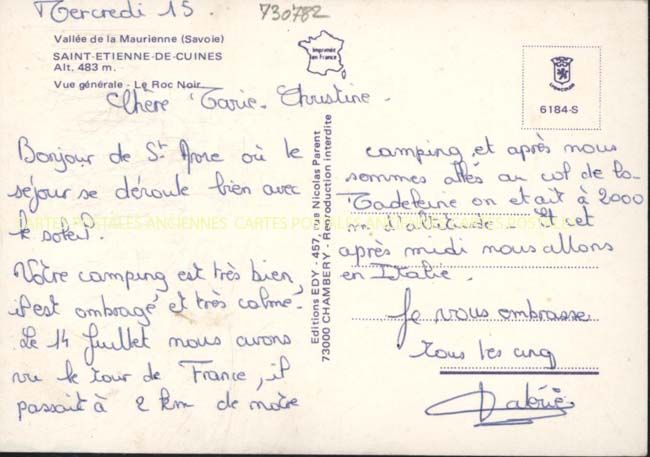 Mercredi 15.
730782
Vallée de la Maurienne (Savoie)
SAINT-ETIENNE-DE-CUINES
Alt. 483 m.
Vue générale - Le Roc Noir
Imprimé
en France
6184-S
Chère Marie-Christine.
Bonjour de St Avre où le
séjour se déroule bien avec
le soleil.
Notre camping est très bien,
il est ombragé et très calme.
Le 14 Juillet nous avons
vu le tour de France, il
passait à 2 km de notre
Editions EDY - 457, rue Nicolas Parent
73000 CHAMBERY - Reproduction interdite
camping, et après nous
sommes allés au col de la
Madeleine on etait à 2000
m d'altitude - Et cet
après midi nous allons
en Italie.
Je vous embrasse
tous les cinq
Valérie
CARTES POSTALES ANCIENNES CARTES POSTALES ANCIENNES CARTES POSTALES